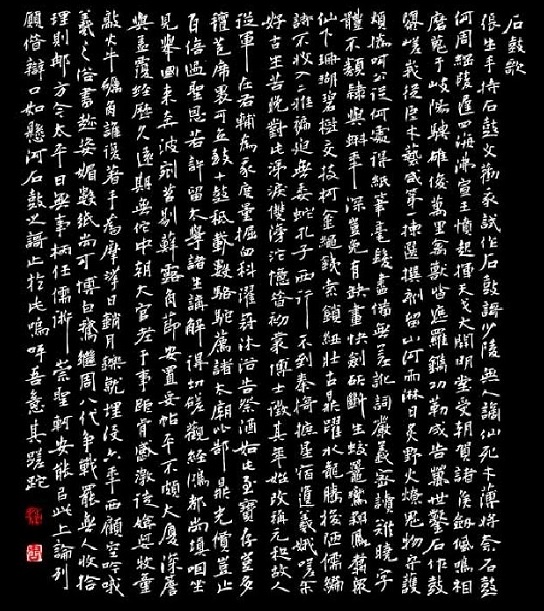 石鼓歌
張生手持石鼓文勸我試作石鼓謌少陵無人謫仙死才薄將奈石鼓
何周綱陵遲四海沸宣王憤起揮天戈大開明堂受朝賀諸侯劍佩鳴相
磨蒐于岐陽騁雄俊萬里禽獸皆遮羅鐫功勒成告萬世鑿石作鼓
隳嵯峨從臣才藝咸第一揀選撰刻留山阿雨淋日炙野火燎鬼物守護
煩撝呵公從何處得紙筆毫髮盡備無差訛詞嚴義密讀難曉字
體不類隸與蝌年深豈免有缺畫快劍斫斷生蛟鼉鸞翔鳳翥衆
仙下珊瑚碧樹交枝柯金繩鐵索鎖紐壯古鼎躍水龍騰梭陋儒編
詩不收入二雅褊迫無委蛇孔子西行不到秦掎摭星宿遺羲娥嗟余
好古生苦晚對此涕淚雙滂沱憶昔初蒙博士徵其年始改稱元和故人
從軍在右輔為我度量掘臼科濯冠沐浴告祭酒如此至寶存豈多
氈苞席裹可立致十鼓祗載數駱駝薦諸太廟比郜鼎光價豈止
百倍過聖恩若許留太學諸生講解得切磋觀經鴻都尚填咽坐
見舉國來奔波剜苔剔蘚露節角安置妥帖平不頗大廈深簷
與蓋覆經歷久遠期無佗中朝大官老于事詎肯感激徒媕婀牧童
敲火牛礪角誰復著手為摩挲日銷月鑠就埋沒六年西顧空吟哦
羲之俗書趁姿媚數紙尚可博白鵝繼周八代爭戰罷無人收拾
理則那方今太平日無事柄任儒術崇聖軻安能以此上論列
願借辯口如懸河石鼓之謌止於此嗚呼吾意其蹉跎